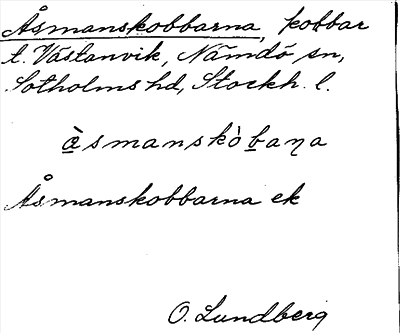 Åsmanskobbarna, kobbar
t. Västanvik, Nämdö sn,
Sotholms hd, Stockh. l.
ὰsmanskὸbaꞃa
Åsmanskobbarna ek
O. Lundberg